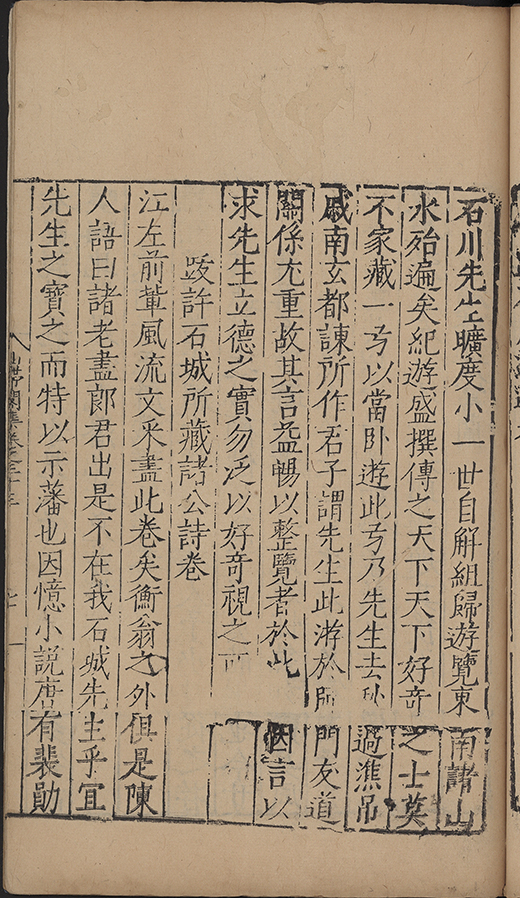 石川先生曠度小一世自解組歸遊覽東南諸山
水殆遍矣紀遊盛撰傳之天下天下好奇之士莫
不家藏一号以當卧遊此号乃先生去秋過濰吊
戚南玄都諫所作君子謂先生此游於師門友道
關係尤重故其言益暢以整覽者於此因言以
求先生立德之實勿泛以好奇視之可
跋許石城所藏諸公詩卷
江左前輩風流文采盡此卷矣衡翁之外俱是陳
人語曰諸老盡郎君出是不在我石城先生乎宜
先生之寶之而特以示藩也因憶小説唐有裴勛